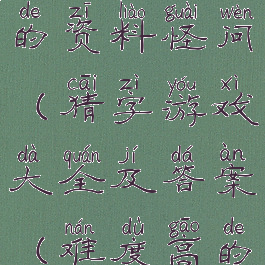 de zī liào guài wèn
的资料怪问
cāi zì yóu xì
(猜字游戏
dà quán jí dá àn
大全及答案
nán dù gāo de
(难度高的